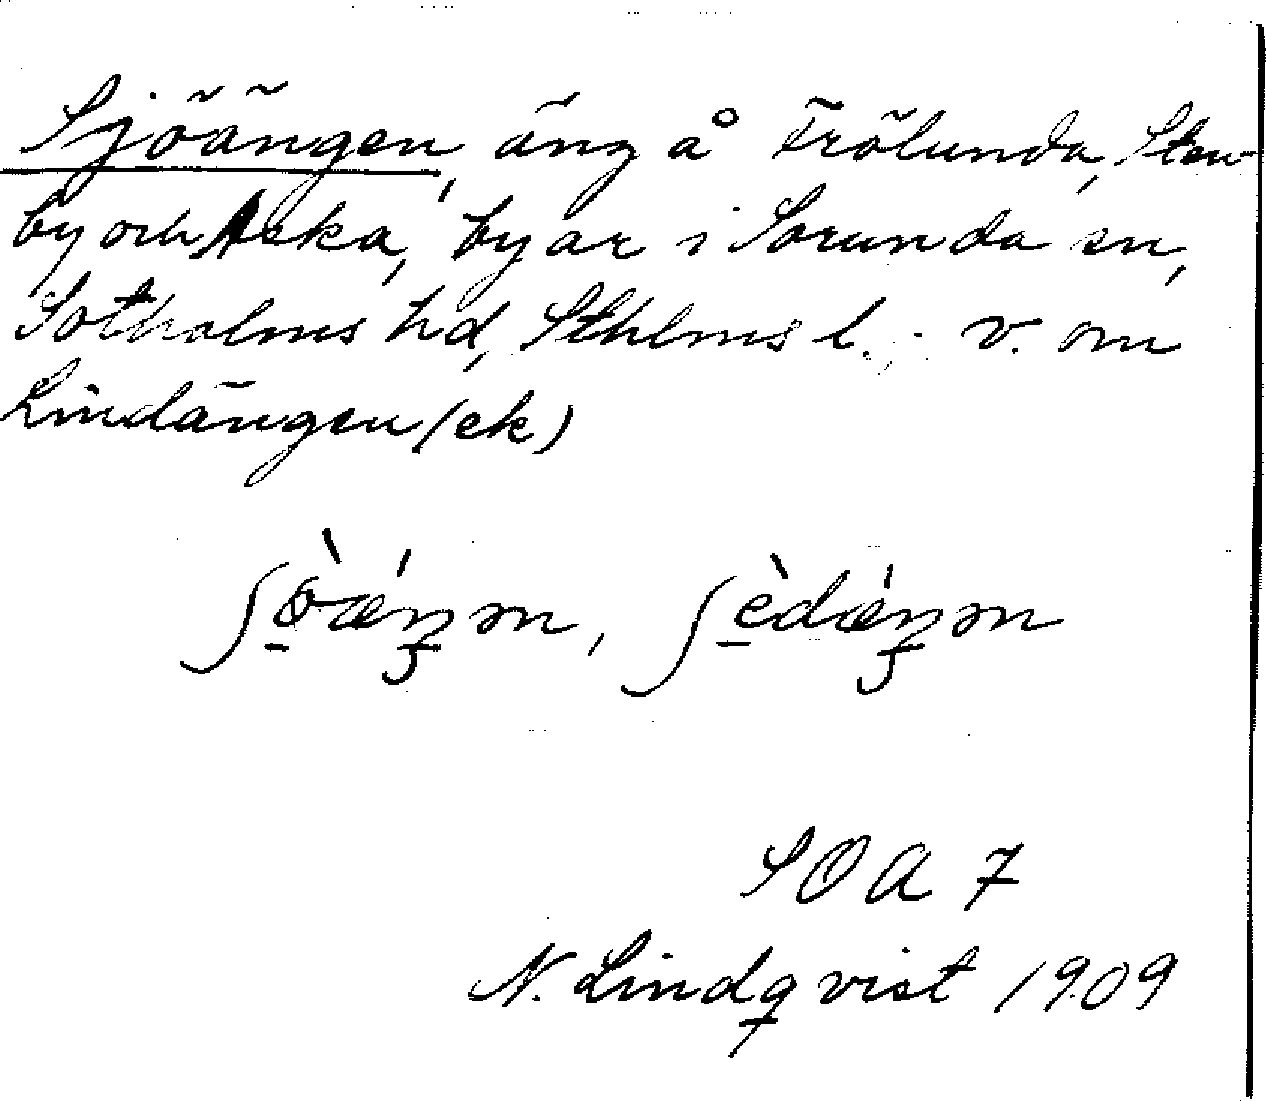 Sjöängen, äng å Frölunda, Sten-
by och Aska, byar i Sorunda sn,
Sotholms hd, Sthlms l.; v. om
Lindängen (ek)
ʃö̀ǽŋən, ʃèdǽŋən
SOA 7
N. Lindqvist 1909